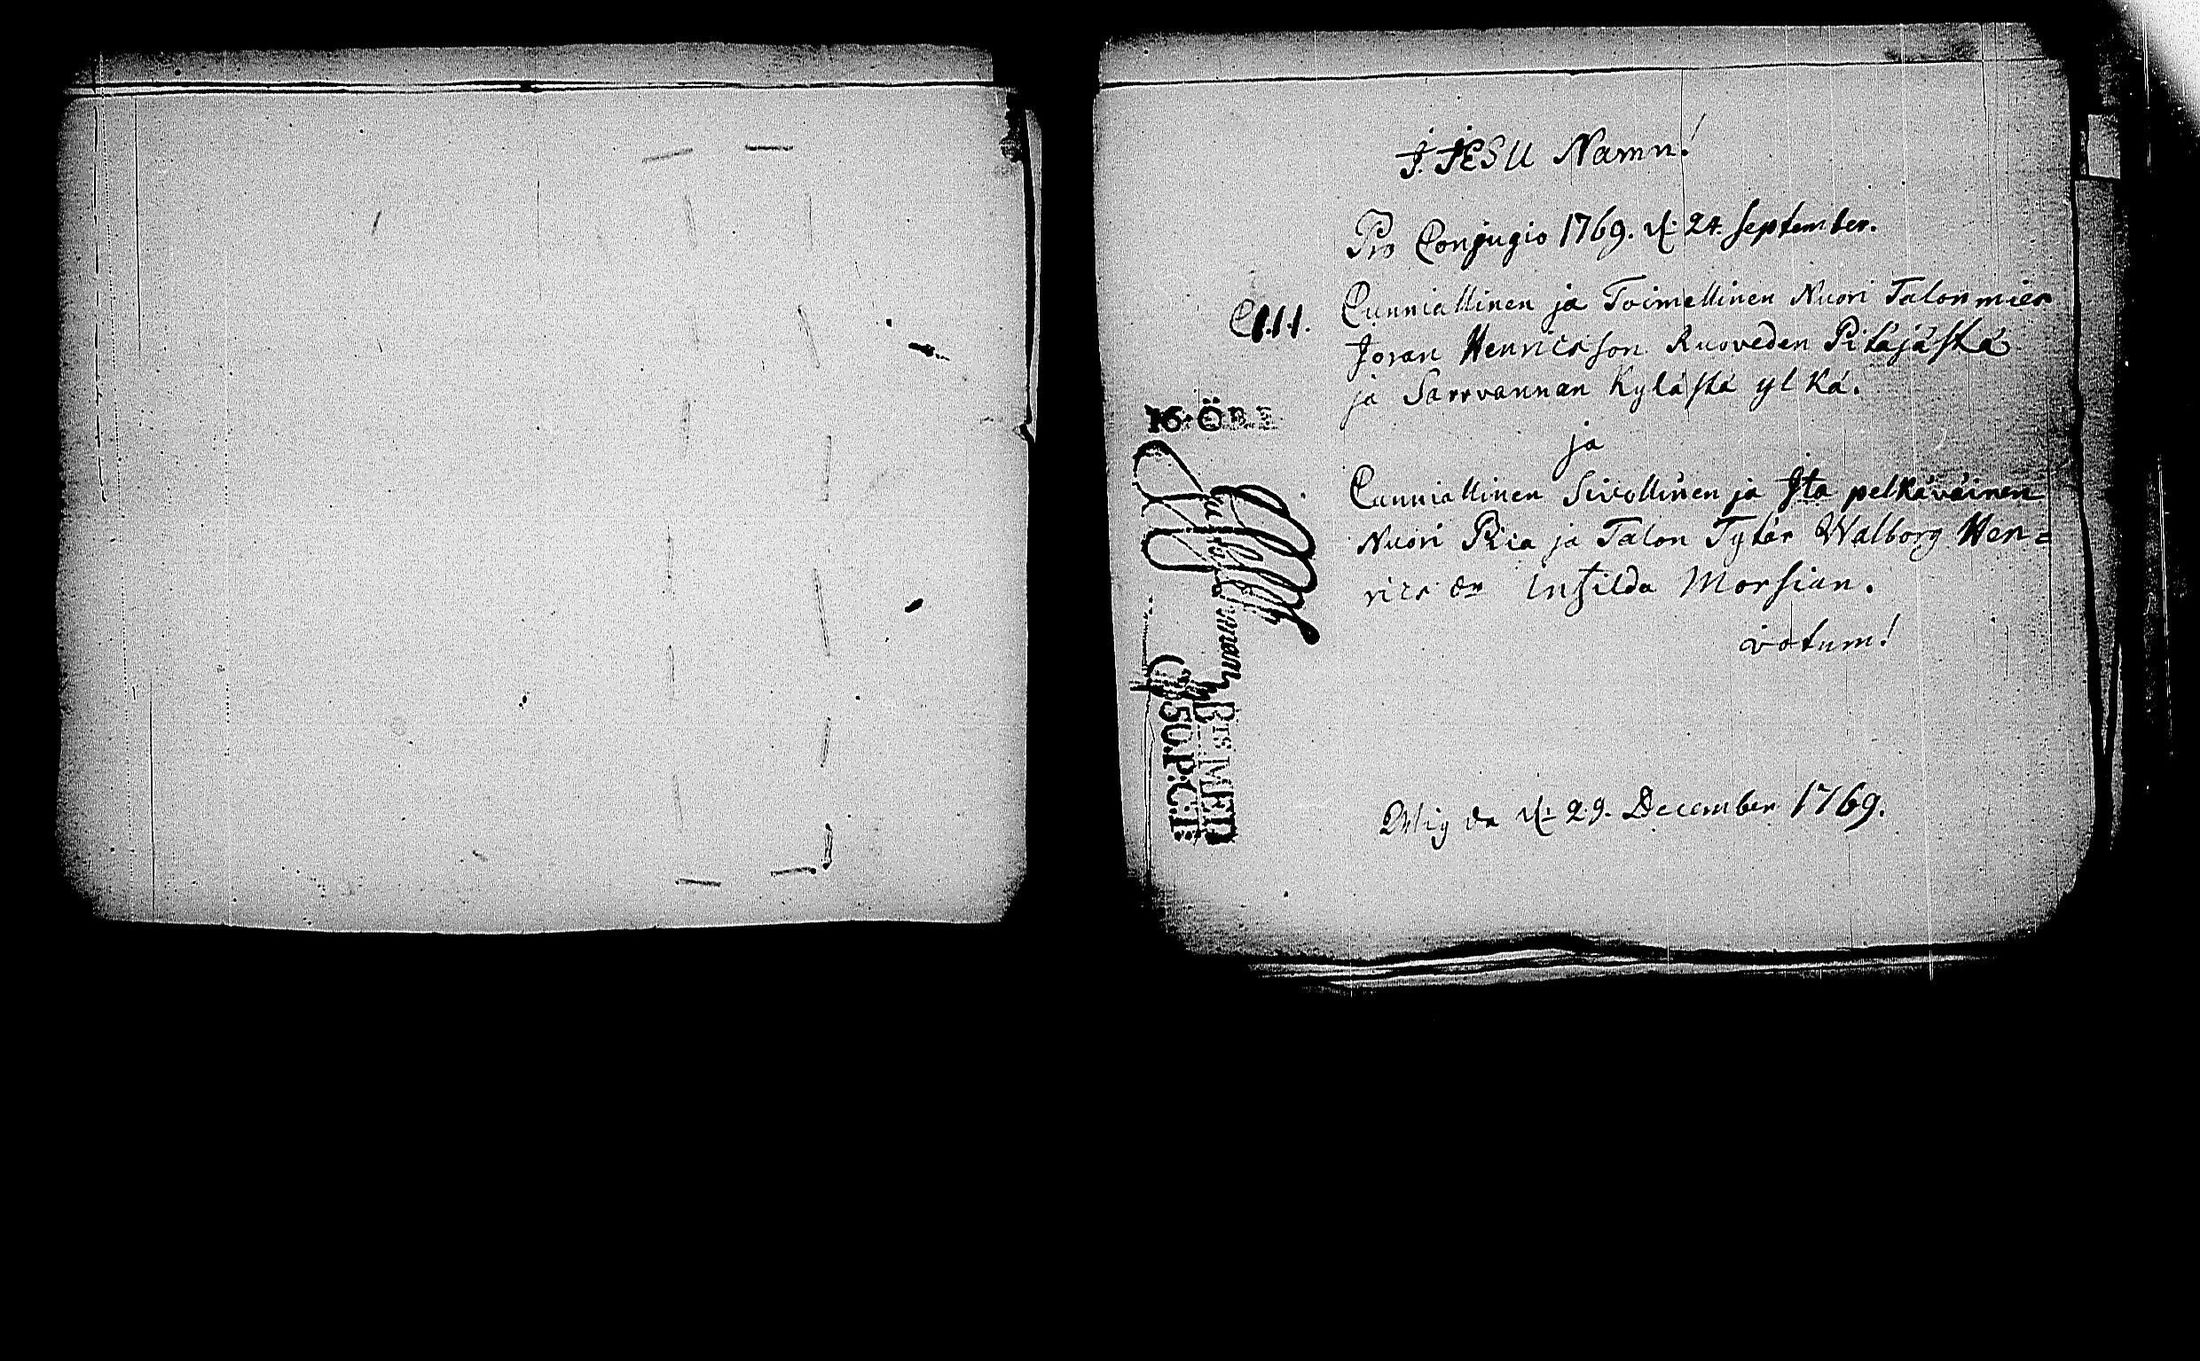 J. JESU Namn!
Pro Conjugio 1769. d: 24. September.
C.1.1.1. Cunniallinen ja Toimellinen Nuori Talonmies
Joran Henricsson Ruoveden Pitäjästä
ja Sarvannan Kylästä ylkä.
ja
Cunniallinen Sivollinen ja Jta pelkäväinen
Nuori Pia ja Talon Tytär Walborg Hen=
rics dr Morsian.
votum!
da d: 29. December 1769.
16 ÖR.
BTS MET
50.P:C:T